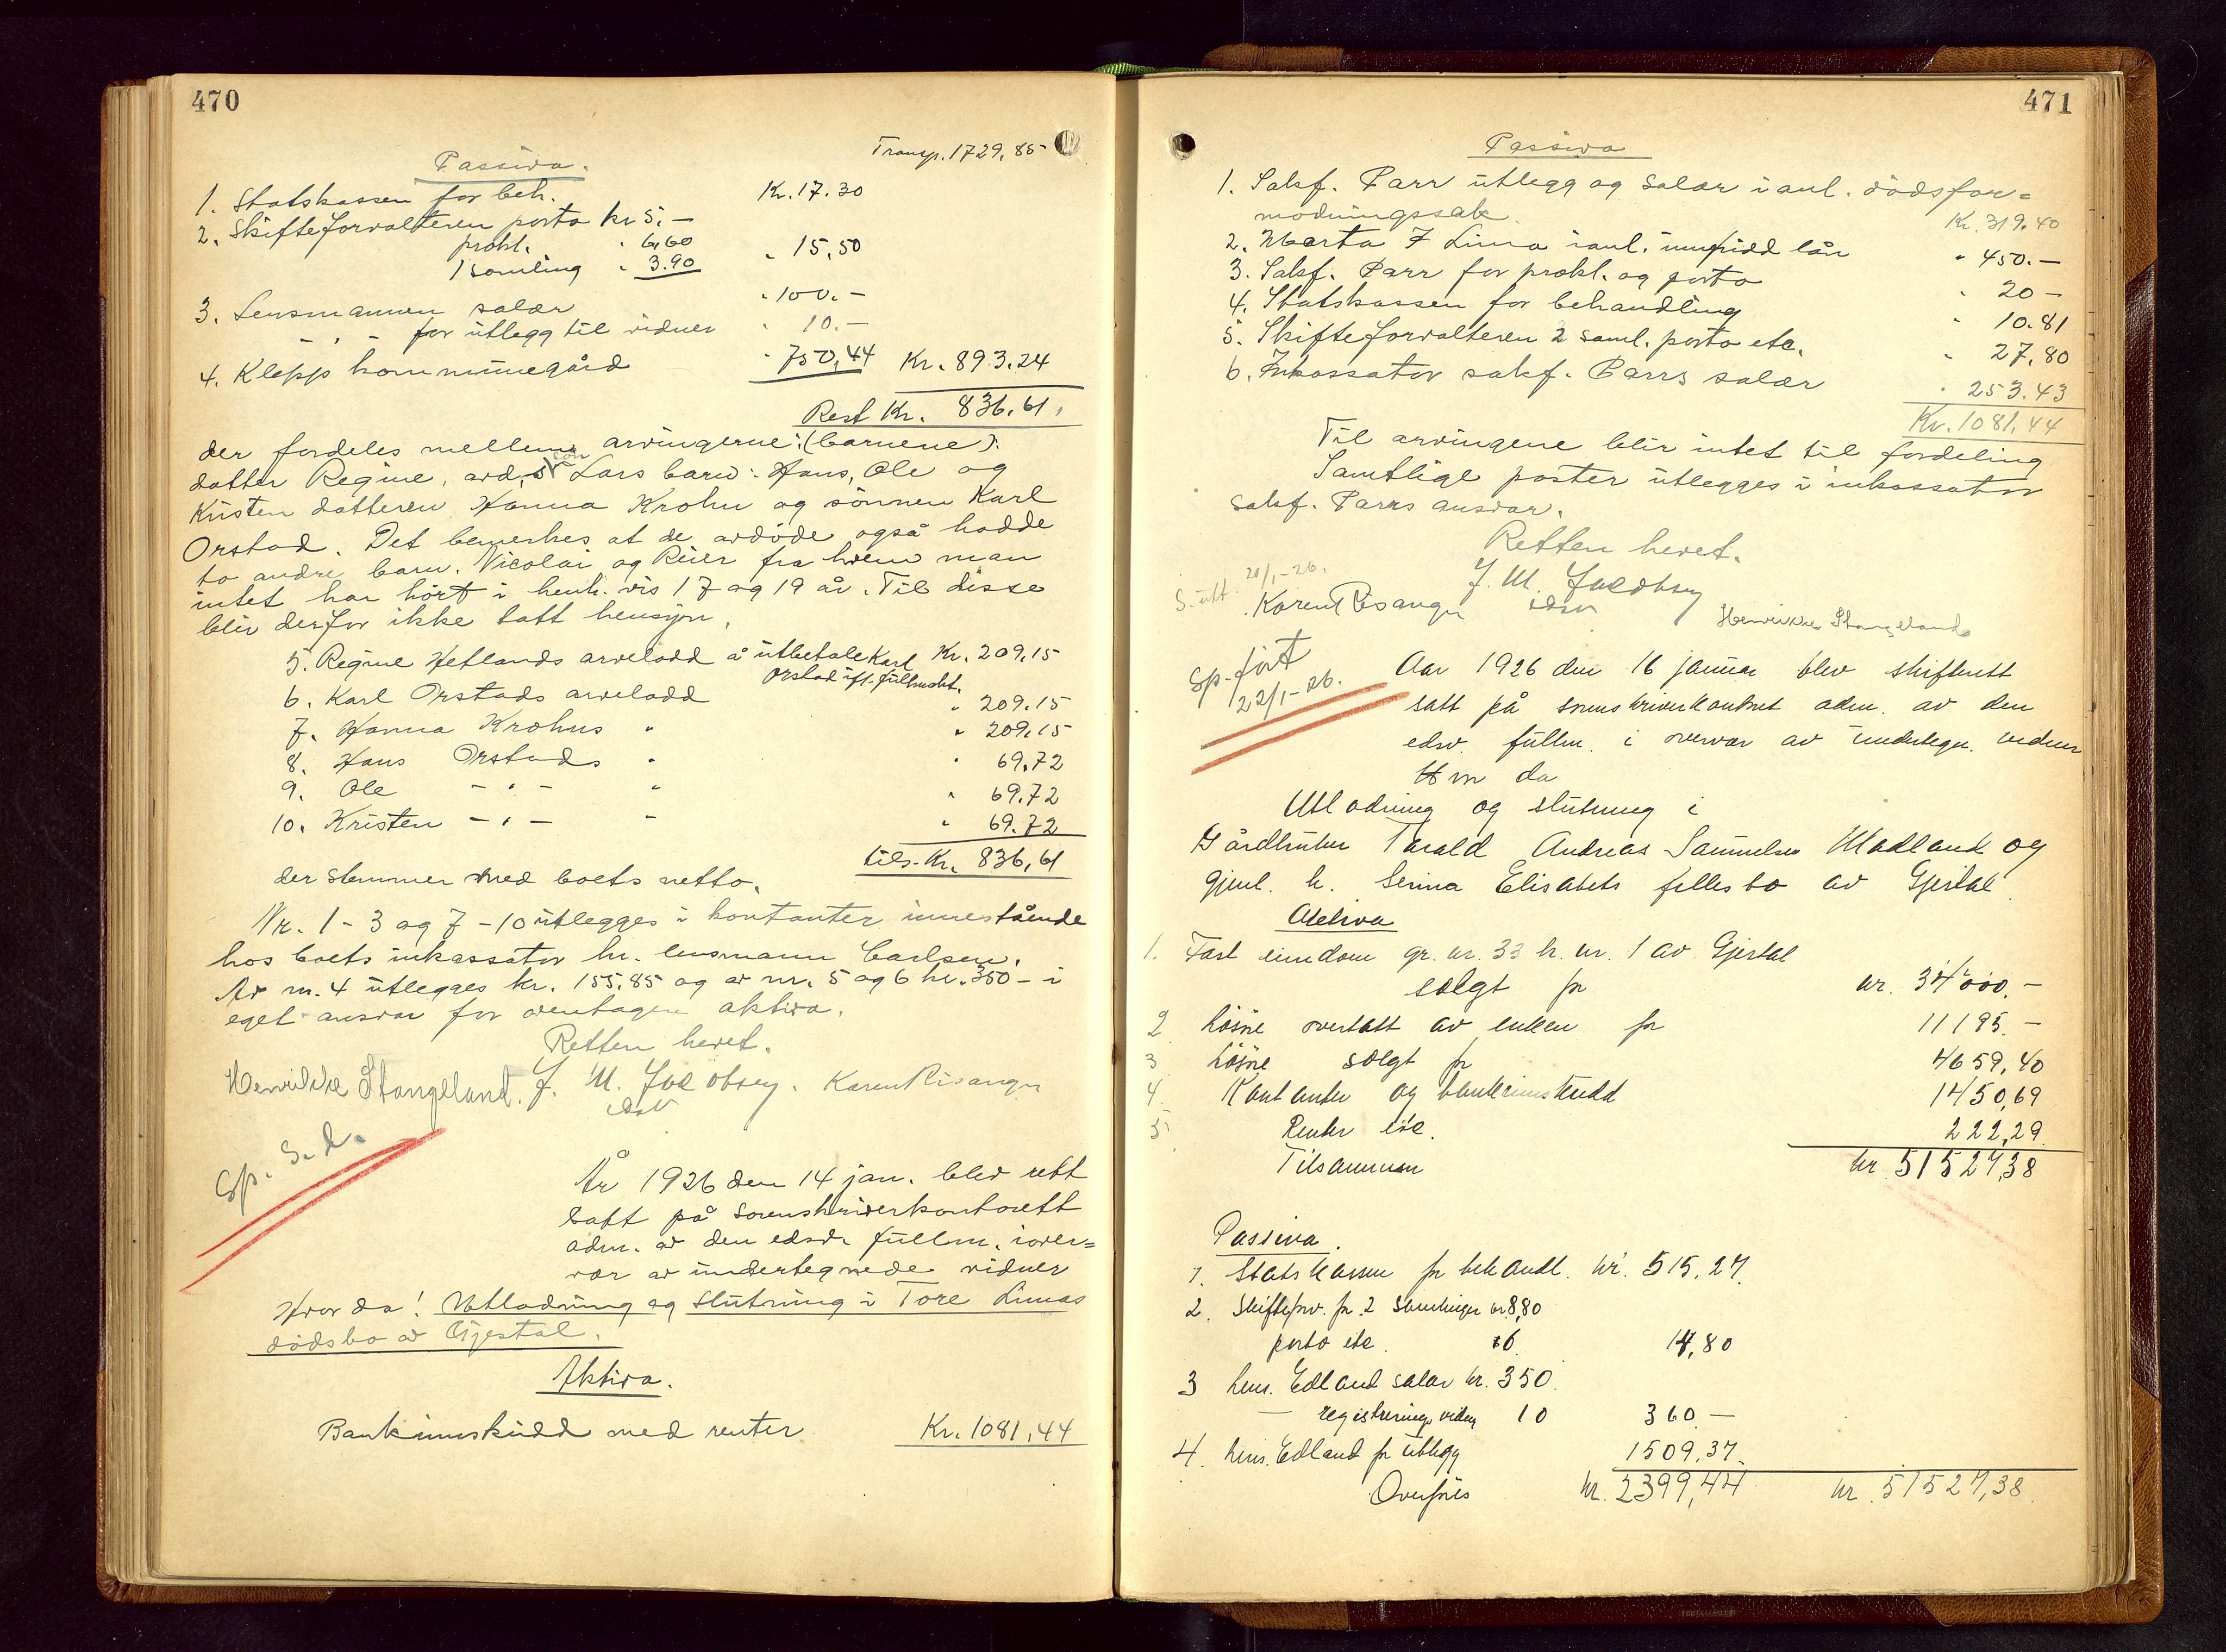 470
Transp. 1729,85
Passiva.
1. Statskassen for beh. Kr. 17.30
2. Skifteforvalteren porto kr 5.-
prokl. " 6,60
1 samling " 3.90 " 15,50
3. Lensmannen salær " 100.-
- " - for utlegg til vidner " 10.-
4. Klepp kommunegård " 750,44 Kr. 893.24
Rest Kr. 836,61.
der fordeles mellem arvingerne: (barnene):
datter Regine, avd. søn Lars barn: Hans, Ole og
Kristen datteren Hanna Krohn og sønnen Karl
Orstad. Det bemerkes at de avdøde også hadde
to andre barn. Nicolai og Reier fra hvem man
intet har hørt i henh.vis 17 og 19 år. Til disse
blir derfor ikke tatt hensyn.
5. Regine Hetlands arvelodd å utbetale Karl Kr. 209,15
Orstad ifl. fullmakt.
6. Karl Orstads arvelodd " 209.15
7. Hanna Krohns " " 209,15
8. Hans Orstads " " 69,72
9. Ole - " - " " 69.72
10. Kristen - " - " " 69.72
tils. Kr. 836,61
der stemmer med boets netto.
Nr. 1-3 og 7-10 utlegges i kontanter innestående
hos boets inkassator hr. lensmann Carlsen.
Av nr. 4 utlegges kr. 155.85 og av nr. 5 og 6 kr. 350- i
eget ansvar for overtagen aktiva.
Retten hevet.
Henrikke Stangeland. J. M. Jacobsen. Karen Risanger
edsv
Sp. S. d.
År 1926 den 14 jan. blev rett
satt på sorenskriverkontorett
adm. av den edsv. fullm. i over=
vær av undertegnede vidner
Hvor da! Utlodning og slutning i Tore Limas
dødsbo av Gjestal.
Aktiva.
Bankinnskudd med renter Kr. 1081,44
471
Passiva
1. Sakf. Parr utlegg og salær i anl. dødsfor=
modningssak. Kr. 319.40
2. Marta T Lima i anl. innfridd lån " 450.-
3. Sakf. Parr for prokl. og porto " 20-
4. Statskassen for behandling " 10.81
5. Skifteforvalteren 2 saml. porto etc. " 27,80
6. Inkassator sakf. Parrs salær " 253.43
Kr. 1081,44
Til arvingene blir intet til fordeling
Samtlige poster utlegges i inkassator
sakf. Parrs ansvar.
Retten hevet.
S. utt. 20/1-26. J. M. Jacobsen
Karen Risanger edsv Henrikke Stangeland
Sp. ført
22/1-26.
Aar 1926 den 16 januar blev skifterett
satt på sorenskriverkontoret adm. av den
edsv. fullm. i overvær av undertegn. vidner
Hvor da
Utlodning og slutning i
Gårdbruker Tarald Andreas Samuelsen Madland og
gjenl. h. Serina Elisabets fellesbo av Gjestal
Aktiva
1. Fast eiendom gr. nr. 33 br. nr. 1 av Gjestal
solgt for kr. 34000.-
2 Løsøre overtatt av enken for 11195.-
3 Løsøre solgt for 4659,40
4. Kontanter og bankinnskudd 1450,69
5 Renter etc. 222,29
Tilsammen kr. 51527,38
Passiva.
1. Statskassen for behandl. kr. 515,27.
2. Skifteforv. for 2 samlinger kr. 8,80
porto etc. 6. 14,80
3 Lens. Edland salær kr. 350.
- registrerings vidner 10 360.-
4. Lens. Edland for utlegg 1509,37.
Overføres kr. 2399,44 kr. 51527,38.